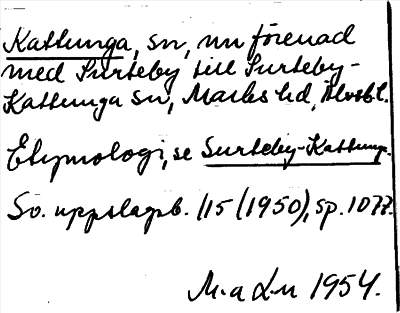 Kattunga, sn, nu förenad
med Surteby till Surteby-
Kattunga sn, Marks hd, Älvsb.l.
Etymologi, se Surteby-Kattunga.
Sv. uppslagsb. (1950), sp. 1077.
M.a L-n 1954.